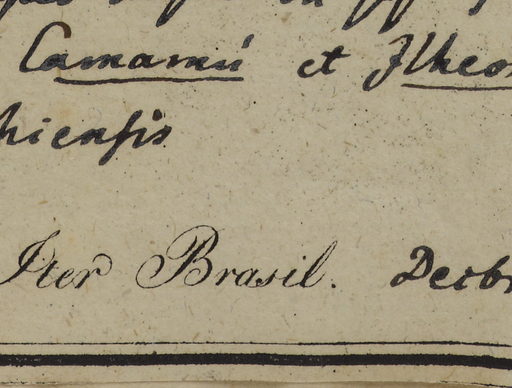 Camamú et Ilheos
hiensis
Iter Brasil. Decbr